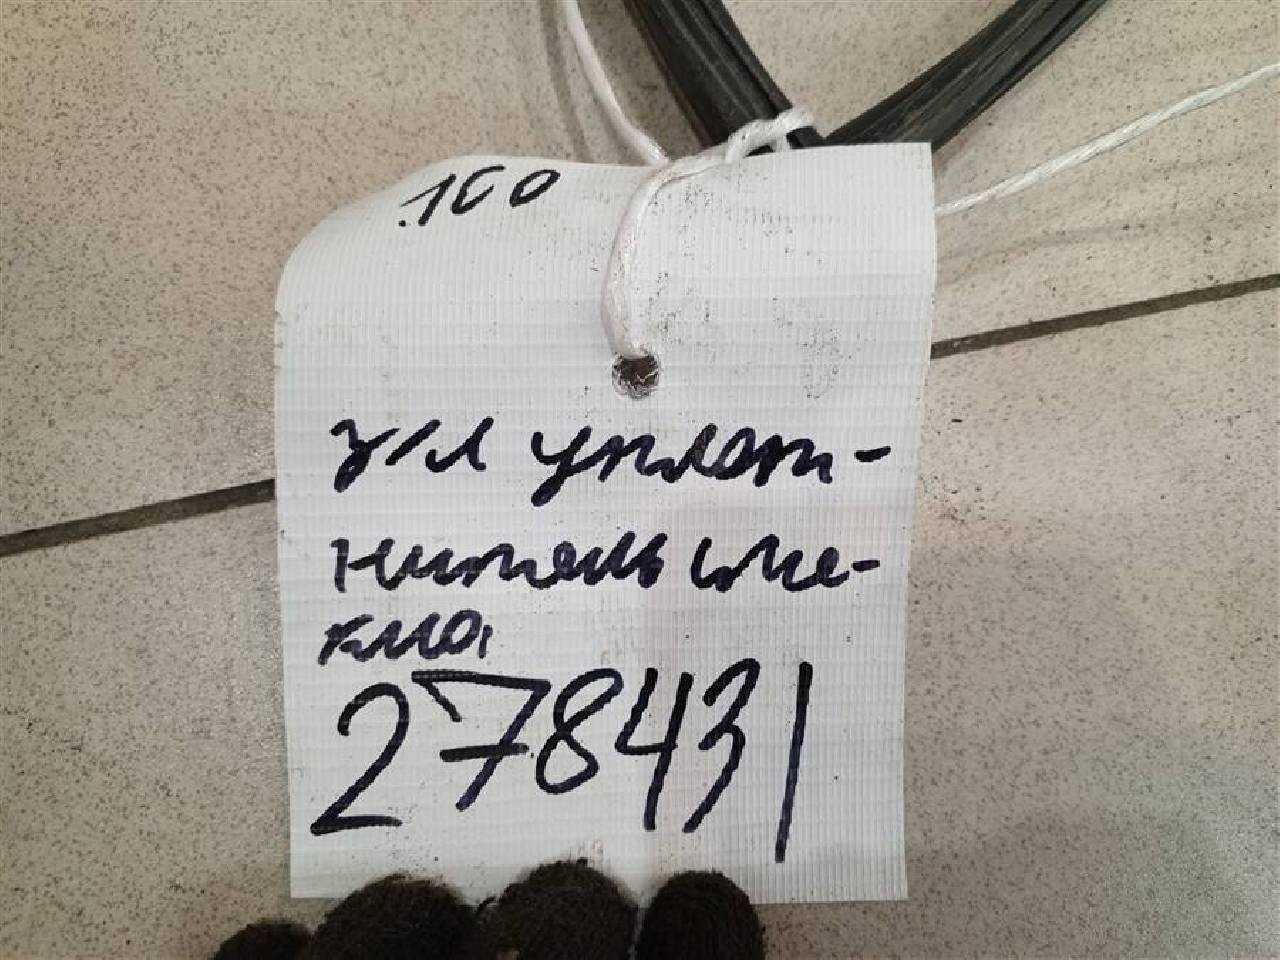 .100
З/Л уплот-
нитель сте-
кла,
278431